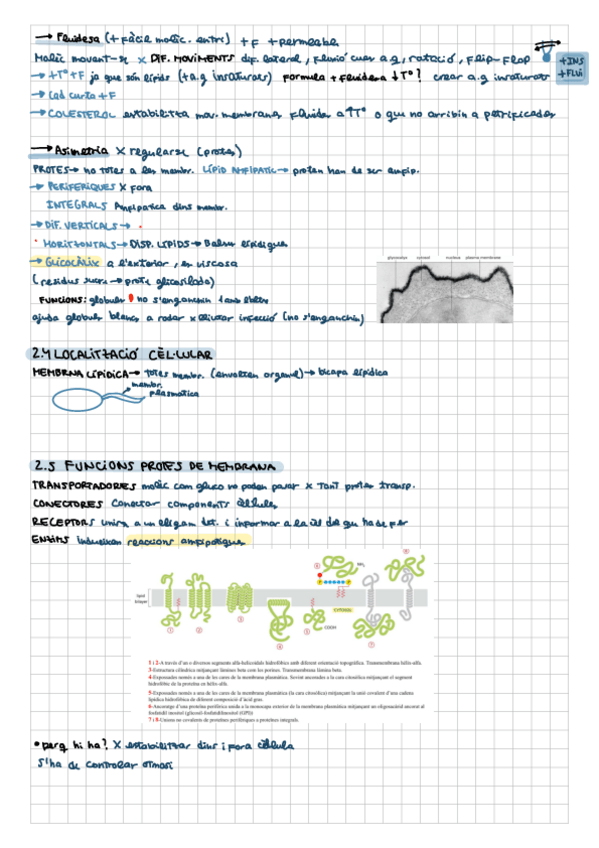 → Fluidesa (+ Fàcil molèc. entri) +F +permeable
Molèc movent-se x DIF. MOVIMENTS dif. lateral, Flexió cues a.g, rotació, Flip-Flop
+INS
+FLUI
→ +Tº +F ja que són lípids (+a.g insaturats) formula + Fluidesa ↓Tº? crear a.g insaturats
→ Cad curta +F
→ COLESTEROL estabilitza mov. membrana, Fluidesa a ↑Tº o que no arribin a petrificades
→ Asimetria x regularse (protes)
PROTES → no totes a les membr. LÍPID AMFIPÀTIC → protes han de ser amfip.
→ PERIFÈRIQUES x fora
INTEGRALS Amfipatica dins membr.
→ DIF. VERTICALS →
HORITZONTALS → DISP. LÍPIDS → Balses lipídiques
→ GLICOCÀLIX a l'exterior, és viscosa
(residus sucre → prote glicosilada)
FUNCIONS: globuls no s'enganchin 1 amb l'altre
ajuda globuls blancs a rodar x evitar infecció (no s'enganchin)
glycocalyx cytosol nucleus plasma membrane
2.4 LOCALITZACIÓ CÈL·LULAR
MEMBRNA LIPÍDICA → totes membr. (envolten organul) → bicapa lipídica
membr.
plasmatica
2.5 FUNCIONS PROTES DE MEMBRANA
TRANSPORTADORES molèc com gluco no poden passar x tant protes transp.
CONECTORES Conectar components cèl·lules
RECEPTORS unirse a un lligam det. i informar a la cèl del que ha de fer
ENZIMS indueixen reaccions amfipatiques
lipid bilayer
NH₂
CYTOSOL
COOH
1 2 3 4 5 6 7 8
P P
1 i 2-A través d'un o diversos segments alfa-helicoidals hidrofòbics amb diferent orientació topogràfica. Transmembrana hèlix-alfa.
3-Estructura cilíndrica mitjançant làmines beta com les porines. Transmembrana làmina beta.
4-Exposades només a una de les cares de la membrana plasmàtica. Sovint ancorades a la cara citosòlica mitjançant el segment
hidrofòbic de la proteïna en hèlix-alfa.
5-Exposades només a una de les cares de la membrana plasmàtica (la cara citosòlica) mitjançant la unió covalent d'una cadena
lipídica hidrofòbica de diferent composició d'àcid gras.
6-Ancoratge d'una proteïna perifèrica unida a la monocapa exterior de la membrana plasmàtica mitjançant un oligosacàrid ancorat al
fosfatidil inositol (glicosil-fosfatidilinositol (GPI))
7 i 8-Unions no covalents de proteïnes perifèriques a proteïnes integrals.
• perq hi ha? x estabilitzar dins i fora cèl·lula
S'ha de controlar osmosi